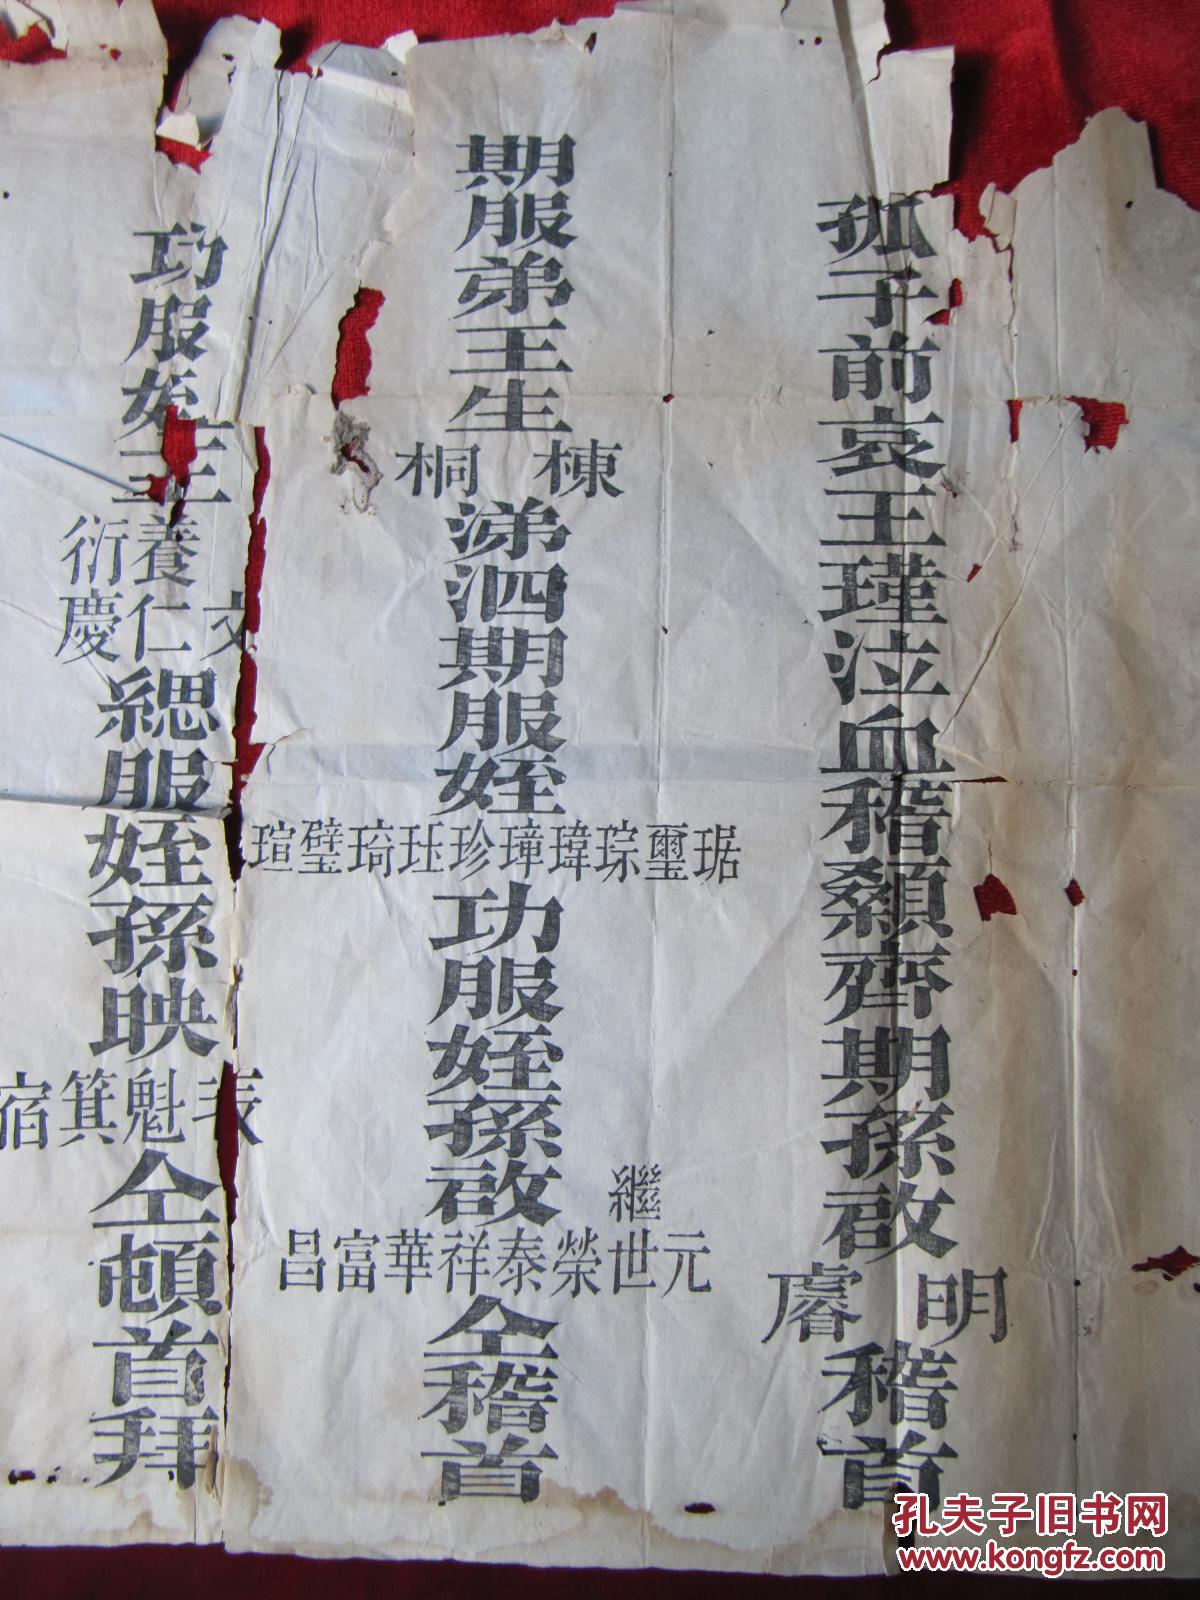 孤子前哀王瑾泣血稽顙齊期孫啟明睿稽首
期服弟王生棟桐涕泗期服姪琚璽琮瑋璋珍珏琦璧瑄功服姪孫啟元繼世榮泰祥華富昌仝稽首
功服姪王文養仁衍慶緦服姪孫映表魁箕宿仝頓首拜
孔夫子旧书网
www.kongfz.com